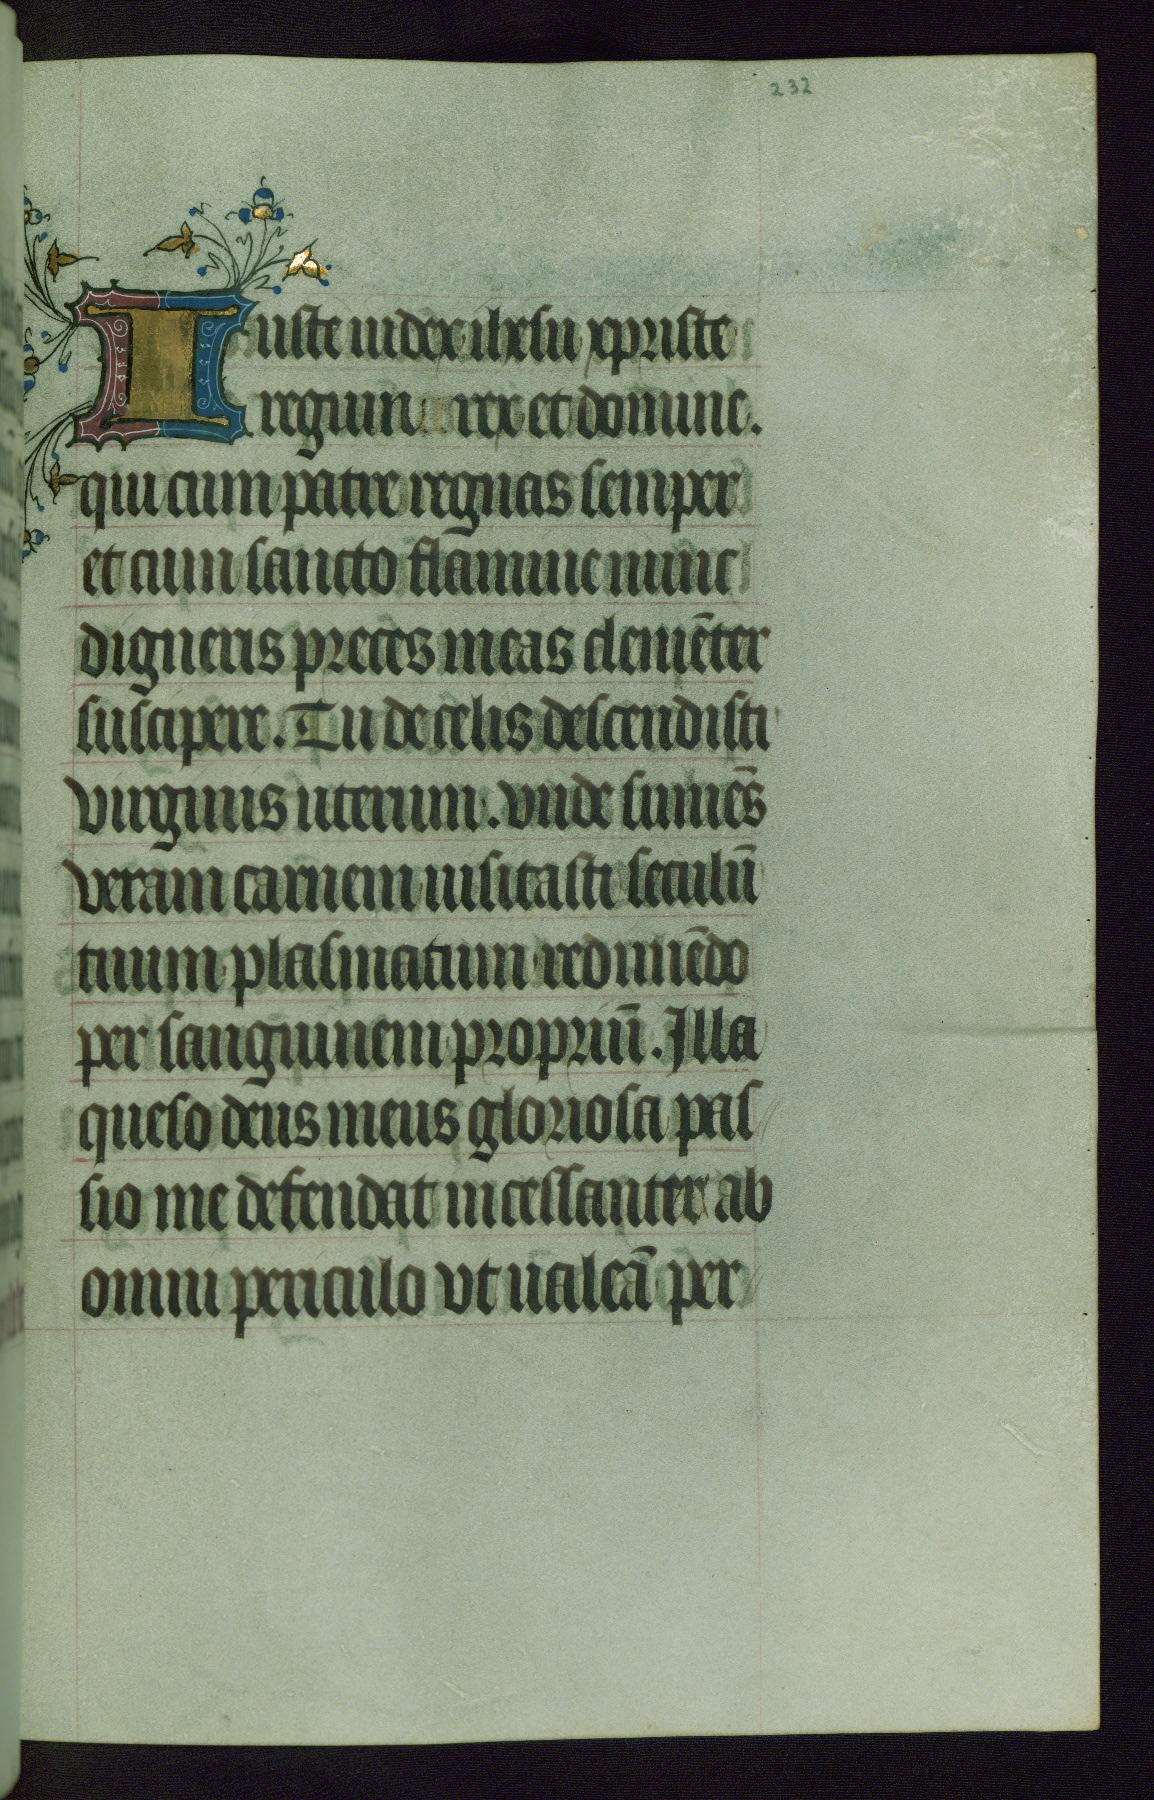 232
Iuste iudex ihesu xpriste
regum rex et domine.
qui cum patre regnas semper
et cum sancto flamine nunc
digneris preces meas clemēter
suscipere. Tu de celis descendisti
virginis uterum. vnde sumēs
veram carnem uisitasti seculū
tuum plasmatum redimēdo
per sanguinem propriū. Illa
queso deus meus gloriosa pas
sio me defendat incessanter ab
omni periculo vt ualeā per